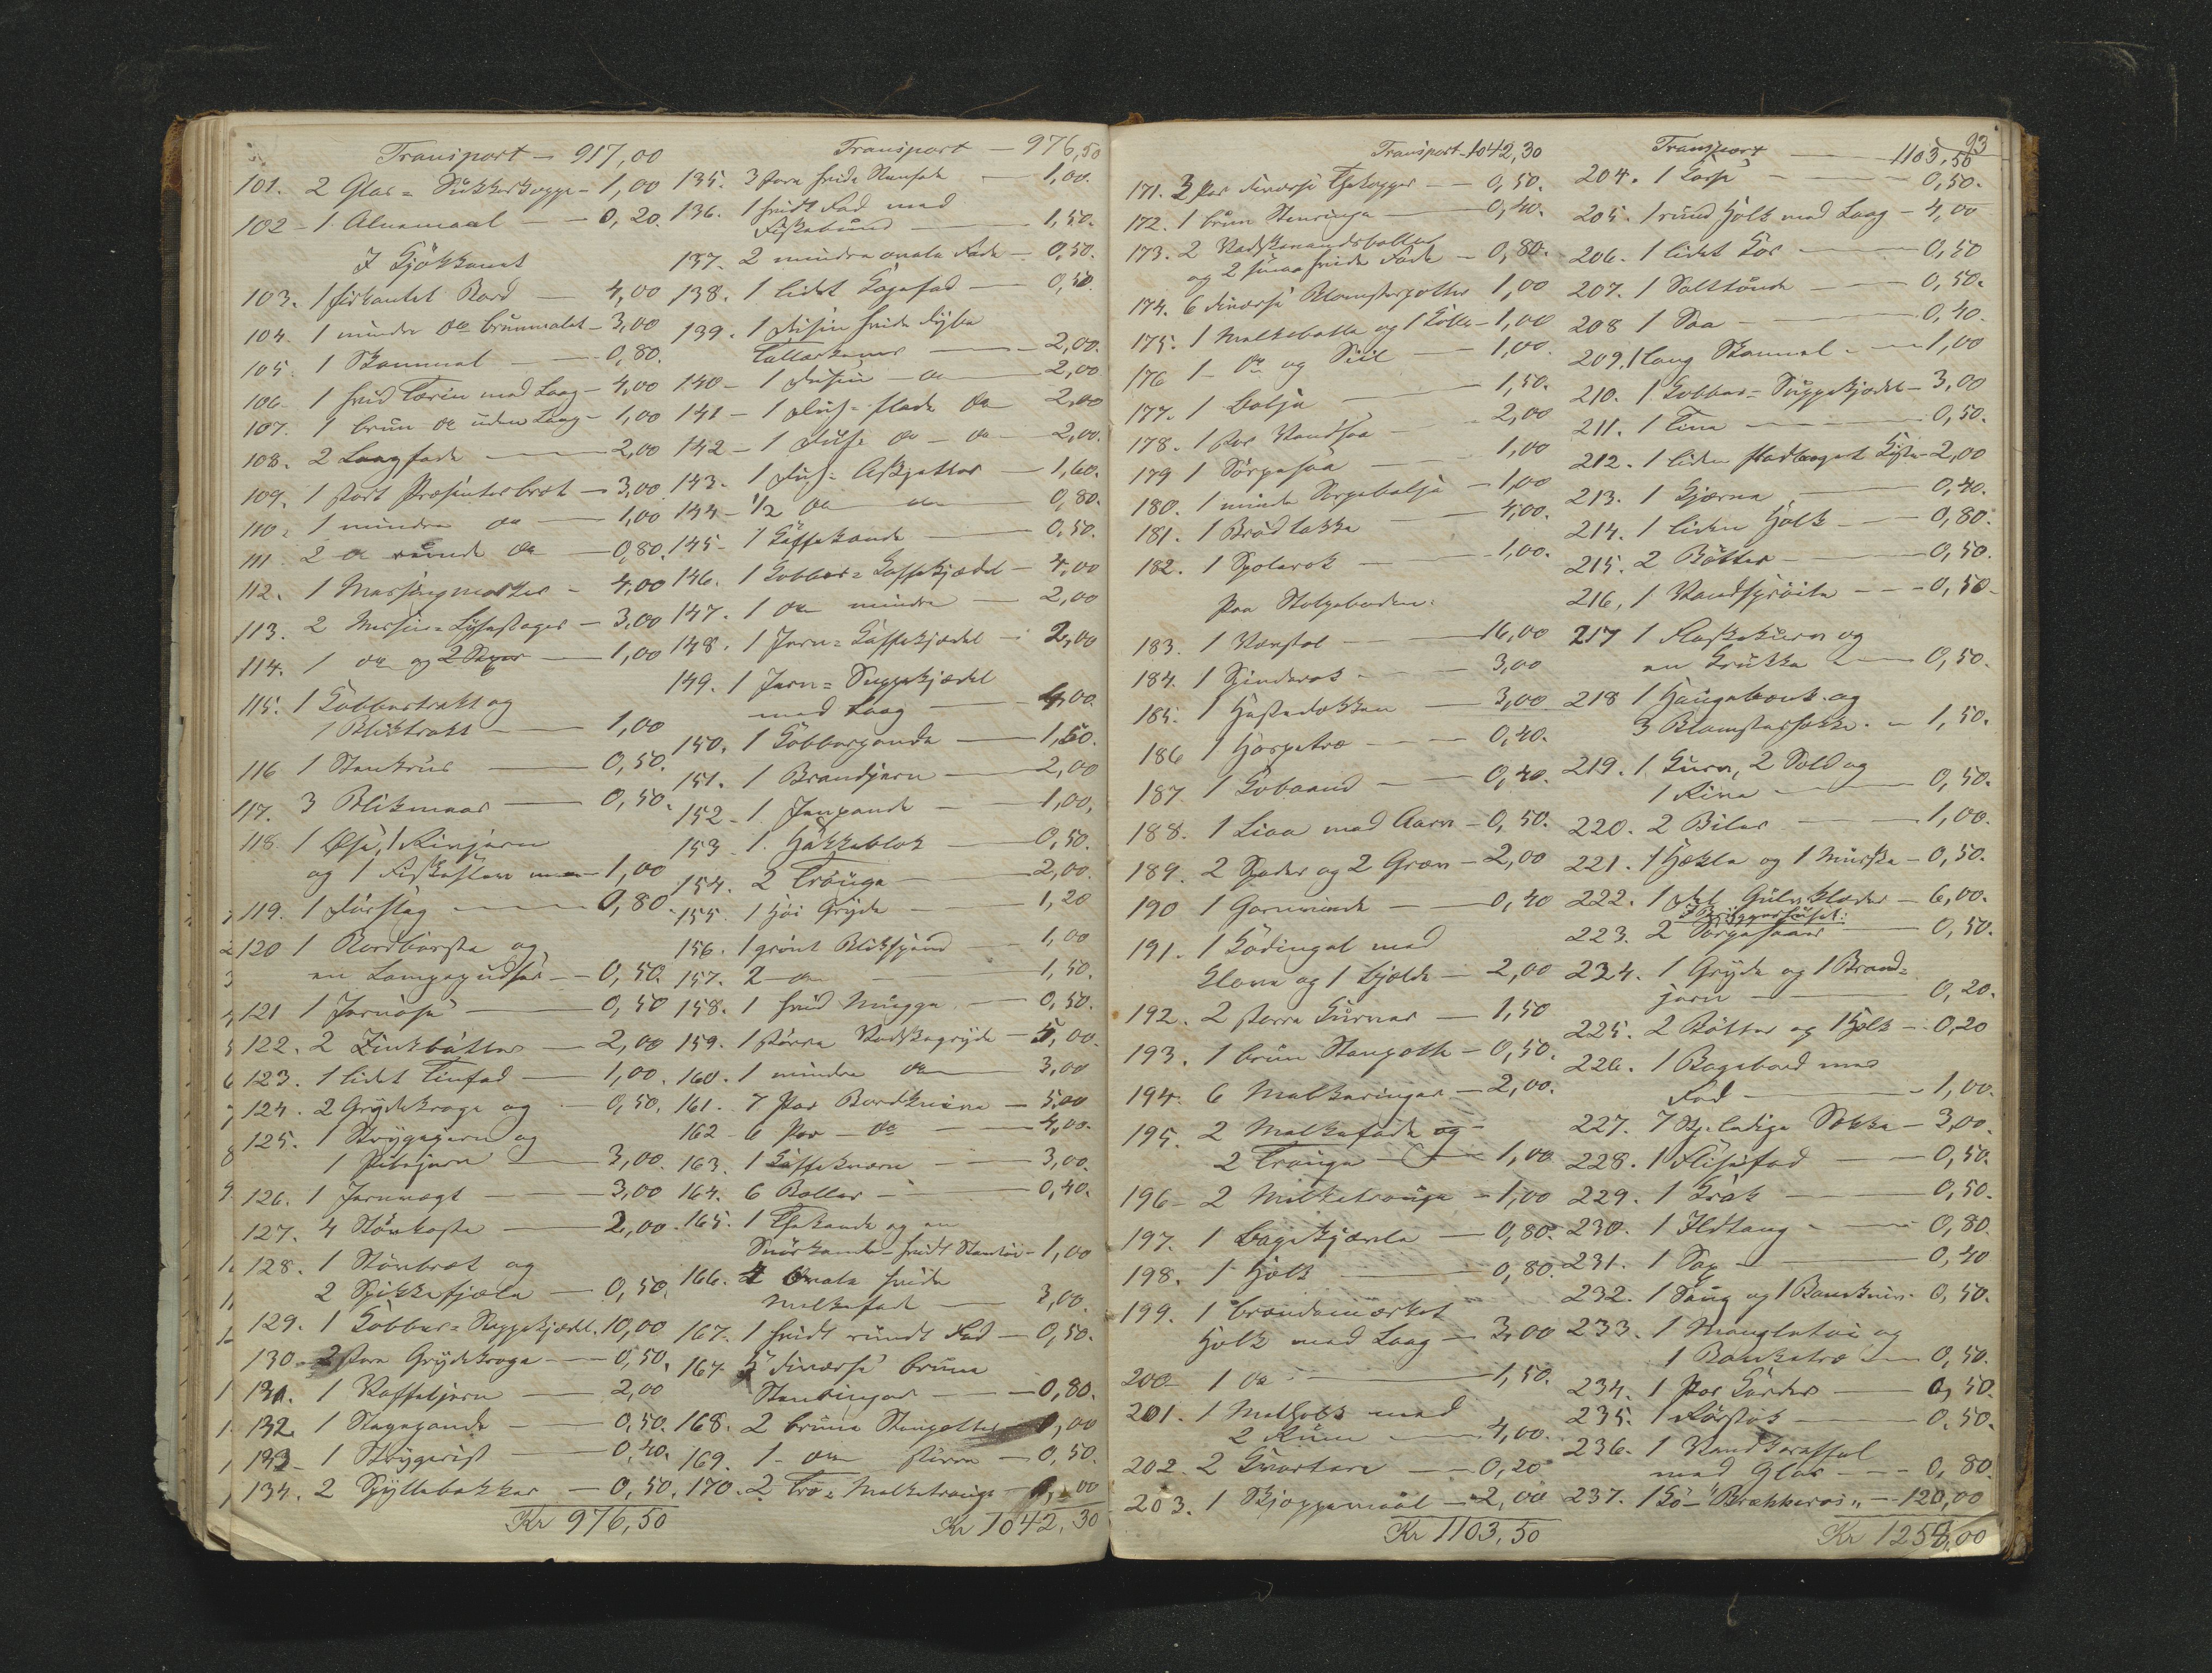 Transport - 917,00
101. 2 Glas = Sukkerkoppe - 1,00
102 - 1 Alnemaal - 0,20.
I Kjøkkenet
103. 1 firkantet Bord - 4,00
104. 1 mindre do brunmalet - 3,00
105. 1 Skammel - 0,80.
106. 1 hvid Terin med Laag - 4,00
107. 1 brun do uden Laag - 1,00
108. 2 Langfade - 2,00
109. 1 stort Præsenterbret - 3,00
110. 1 mindre do - 1,00
111. 2 do runde do - 0,80.
112. 1 Messingmorter - 4,00
113. 2 Messin = Lysestager - 3,00
114. 1 do og 2 Saxer - 1,00
115. 1 Kobbertrakt og
1 Bliktrakt - 1,00
116 1 Stenkrus - 0,50.
117. 3 Blikmaar - 0,50.
118. 1 Øse, 1 Rivjern
og 1 - 1,00
119. 1 Dørslag - 0,80.
120 1 Bordbørste og
en Lampepudser - 0,50.
121 1 Jernøse - 0,50
122. 2 Zinkbøtter - 2,00
123. 1 lidet Tinfad - 1,00.
124. 2 Grydekroge og - 0,50.
125. 1 Strygejern og
1 Pibejern - 3,00.
126. 1 Jernvægt - 3,00
127. 4 - 2,00.
128. 1 og
2 Spikkefjæle - 0,50.
129. 1 Kobber = Suppekjedel. 10,00
130. 2 store Grydekroge - 0,50.
131. 1 Vaffeljern - 2,00
132. 1 Stegepande - 0,50.
133 - 1 Strygerist - 0,40.
134. 2 Skyllebakker - 0,50.
Kr 976,50
Transport - 976,50
135. 3 store hvide Stenfade - 1,00.
136. 1 hvidt Fad med
Fiskebund - 1,50.
137. 2 mindre ovale Fade - 0,50.
138. 1 lidet Kagefad - 0,50.
139. 1 Dusin hvide dybe
Tallerkener - 2,00.
140 - 1 Dusin - do - 2,00
141 - 1 Dus = flade do 2,00
142 - 1 Dus = do - do - 2,00.
143. 1 Dus = Askpotter - 1,60.
144 - 1/2 do - 0,80.
145 - 1 Kaffekande - 0,50.
146. 1 Kobber = Kaffekjedel - 4,00
147. 1 do mindre - 2,00
148. 1 Jern = Kaffekjedel - 2,00
149. 1 Jern = Suppekjedel
med Laag - 4,00.
150. 1 Kobberpande - 1,50.
151. 1 Brandjern - 2,00
152 - 1. Jernpande - 1,00.
153 - 1. Hakkeblok - 0,50.
154. 2 Trouge - 2,00.
155. 1 høi Gryde - 1,20
156. 1 grønt Blikspand - 1,00
157. 2 - do - 1,50.
158. 1 hvid Mugge - 0,50.
159. 1 større Vadskegryde - 5,00.
160. 1 mindre do 3,00
161. 7 Par Bordknive - 5,00
162 - 6 Par - do - 4,00.
163. 1 Kaffekværn - 3,00.
164. 6 Boller - 0,40.
165. 1 Thekande og en
Smørkande - hvidt Stentøi - 1,00
166. 4 ovale hvide
Melkefade - 3,00.
167. 1 hvidt rundt Fad - 0,50.
167 5 diverse brune
Stenringer - 0,80.
168. 2 brune Stenpotter 1,00
169. 1 - do større - 0,50.
170. 2 Træ = Melketrouge - 1,00
Kr 1042,30
Transport - 1042,30
171. 3 Par diverse Thekopper - 0,50.
172. 1 brun Stenringe - 0,40.
173. 2 Vadskevandsboller
og 2 smaa hvide Fade - 0,80.
174. 6 diverse Blomsterpotter 1,00
175. 1 Melkebøtte og 1 Kolle - 1,00
176 1 - do og Siil - 1,00.
177. 1 Balje - 1,50.
178. 1 stor Vandsaa - 2,00
179 1 Sørpesaa - 1,00
180. 1 mindre Sørpebalje - 1,00
181. 1 Brødbakke - 4,00.
182. 1 Spolerok - 1,00.
paa Stolpeboden.
183. 1 Vævstol - 16,00
184. 1 Spinderok - 3,00
185. 1 Hestedækken - 3,00
186 1 Harpetræ - 0,40.
187. 1 Kobaand - 0,40.
188. 1 Liaa med Aarv - 0,50.
189. 2 Spader og 2 Græv - 2,00
190 1 Garnvinde - 0,40
191. 1 Kødingel med
Klave og 1 Bjelde - 2,00
192. 2 større Kurver - 1,50
193. 1 brun Stenpotte - 0,50.
194. 6 Melkeringer - 2,00.
195. 2 Melkefade og
2 Trouge - 1,00
196 - 2 Melketrouge - 1,00
197. 1 Bagekjævle - 0,80.
198. 1 Holk - 0,80.
199. 1 brændemærket
Holk med Laag - 3,00
200 - 1 do - 1,50.
201. 1 Melholk med
2 Rum - 4,00.
202. 2 Kvartere - 0,20.
203. 1 Skjeppemaal - 2,00
Kr 1103,50
93
Transport - 1103,50
204. 1 Tasse - 0,50.
205. 1 rund Holk med Laag - 4,00
206. 1 lidet Kar - 0,50
207. 1 Salttønde - 0,50.
208 1 Saa - 0,40.
209. 1 lang Skammel - 1,00
210. 1 Kobber = Suppekjedel - 3,00
211. 1 Tine - 0,50.
212. 1 liden fladlaaget Kiste - 2,00
213. 1 Kjærne - 0,40.
214. 1 liden Holk - 0,80.
215. 2 Bøtter - 0,50.
216. 1 Vandsprøite - 0,50.
217 1 Flaskekurv og
en Krukke - 0,50.
218 1 Havebænk og
3 - 1,50.
219. 1 Kurv, 2 Sold og
1 Rive - 0,50.
220. 2 Biler - 1,00.
221. 1 Hekle og 1 - 0,50.
222. 1 Del Gulvklæder - 6,00.
I Bryggerhuset:
223. 2 Sørpesaaer - 0,50.
224. 1 Gryde og 1 Brand =
jern - 0,20.
225. 2 Bøtter og 1 Holk - 0,20
226. 1 Bagebord med
Fod - 1,00.
227. 7 Stk. ledige Sække - 3,00.
228. 1 Flisefad - 0,50.
229. 1 Krak - 0,50.
230. 1 Ildtang - 0,80.
231. 1 Sax - 0,40
232. 1 Saug og 1 Baandkniv. 0,50.
233. 1 Mangletøi og
1 Banketræ - 0,50.
234. 1 Par Karder - 0,50.
235. 1 - 0,50.
236. 1 Vandkaraffel
med Glas - 0,80.
237. 1 Ko - "Brækkeros" - 120,00
Kr 1258,00